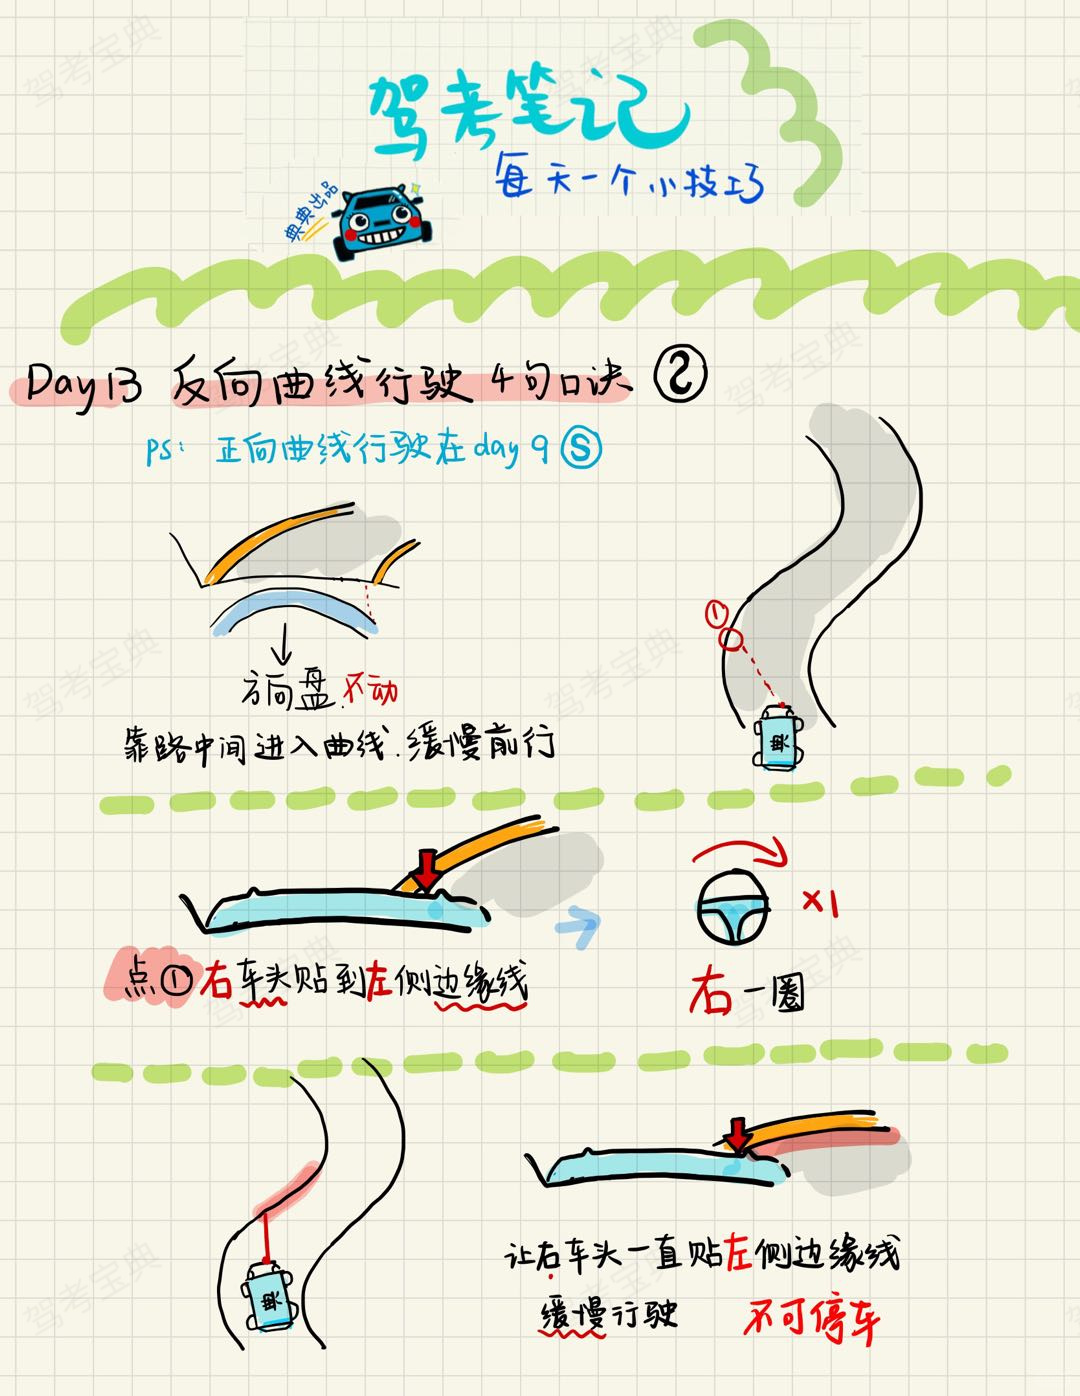 驾考笔记
每天一个小技巧
典典出品
Day13 反向曲线行驶 4句口诀 Ƨ
PS: 正向曲线行驶在day 9 Ⓢ
①
方向盘不动
靠路中间进入曲线.缓慢前行
典
×1
点①右车头贴到左侧边缘线
右一圈
典
让右车头一直贴左侧边缘线
缓慢行驶 不可停车
驾考宝典